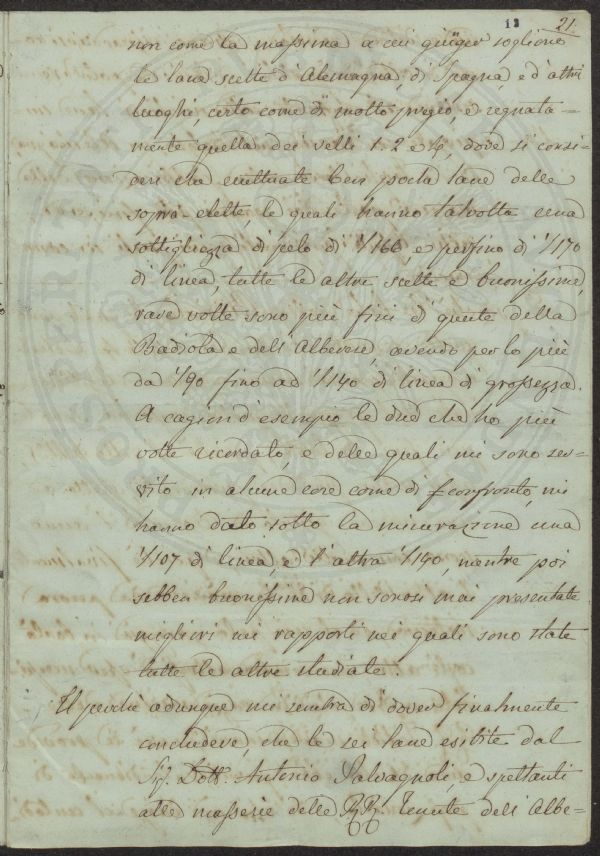 12 21.
non come la massima a cui giunger sogliono
le lane scelte d'Alemagna, di Spagna, e d'altri
luoghi certo come di molto pregio, e segnata-
mente quella dei velli 1. 2 e 4, dove si consi-
deri che eccettuate ben poche lane delle
sopra-elette, le quali hanno talvolta una
sottigliezza di pelo di 1/166, e perfino di 1/170
di linea, tutte le altre scelte e buonissime,
rare volte sono più fini di queste della
Badiola e dell'Alberese, avendo per lo più
da 1/90 fino ad 1/140 di linea di grossezza.
A cagion d'esempio le due che ho più
volte ricordato, e delle quali mi sono ser-
vito in alcune cose come di confronto, mi
hanno dato sotto la misurazione una
1/107 di linea, e l'altra 1/140, mentre poi
sebben buonissime non sonosi mai presentate
migliori nei rapporti nei quali sono state
tutte le altre studiate.
Il perchè adunque mi sembra di dover finalmente
concludere, che le sei lane esibite dal
Sig. Dott. Antonio Salvagnoli, e spettanti
alle masserie delle RR Tenute dell'Albe-